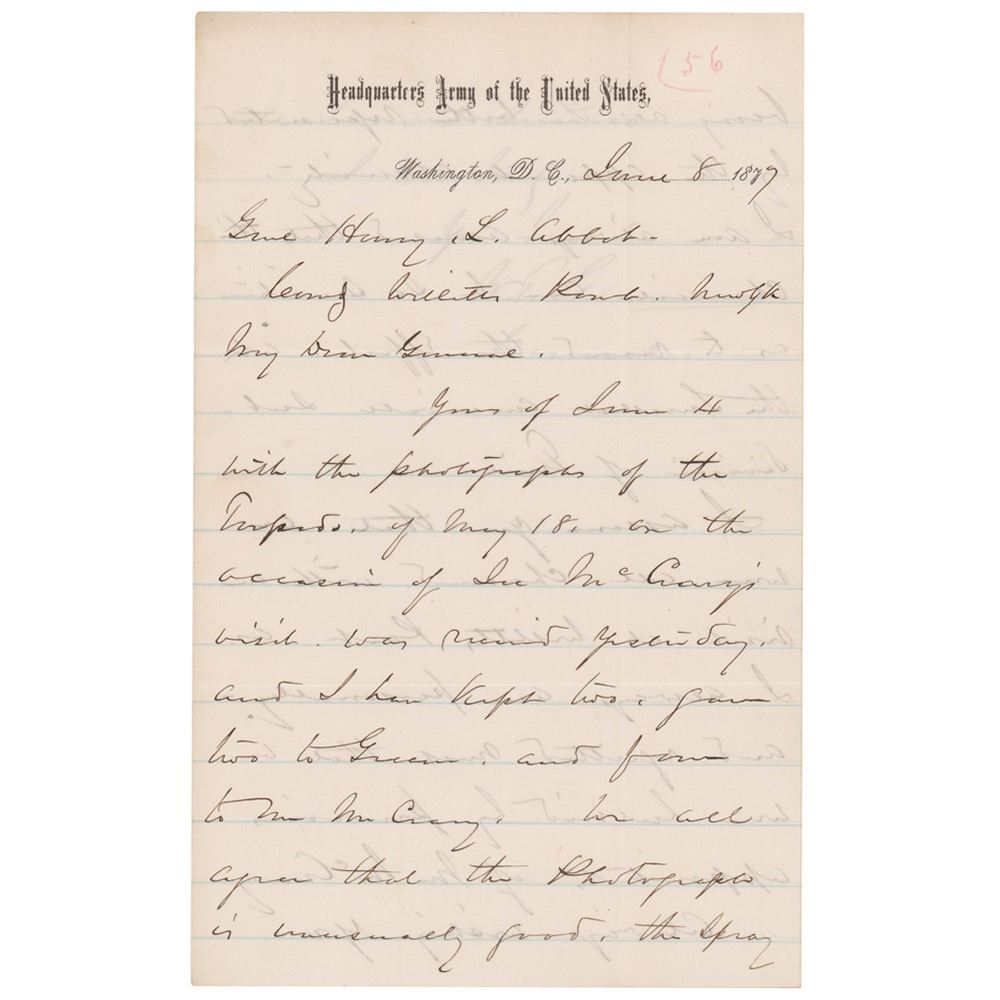 (56
Headquarters Army of the United States,
Washington, D. C., June 8 1879
Genl Henry L. Abbot-
Comdg Willetts Point. New Yk
My Dear General.
Yours of June 4
with the photographs of the
Torpedo. of May 18. on the
occasion of Sec McCrary's
visit. was received yesterday.
and I have kept two. gave
two to Greene. and four
to Mr McCrary. We all
agree that the Photographs
is unusually good. the Spray